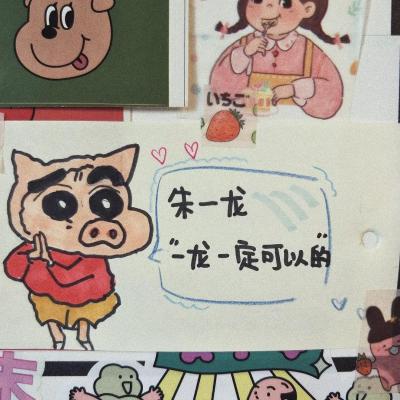 いちご
朱一龙
"一龙一定可以的"
末